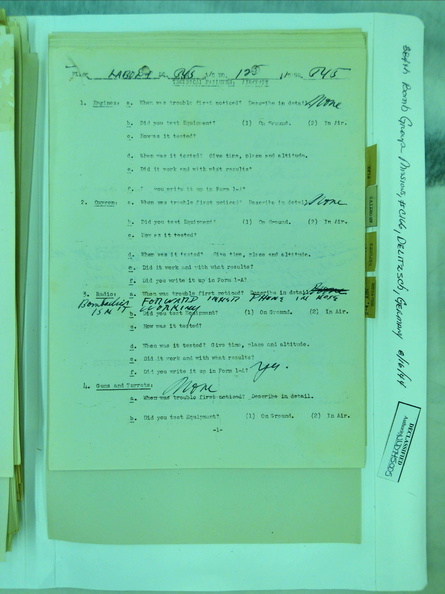 LARODA 845 A/C NO. 125 845
1. Engines: a. When was trouble first noticed? Describe in detail. None
b. Did you test Equipment? (1) On Ground. (2) In Air.
c. How was it tested?
d. When was it tested? Give time, place and altitude.
e. Did it work and with what results?
f. you write it up in Form 1-A?
2. a. When was trouble first noticed? Describe in detail. None
b. Did you test Equipment? (1) On Ground. (2) In Air.
c. How was it tested?
d. When was it tested? Give time, place and altitude.
e. Did it work and with what results?
f. Did you write it up in Form 1-A?
3. Radio: a. When was trouble first noticed? Describe in detail.
Bombadier FORWARD INNER PHONE IN NOSE
ISN'T WORKING
b. Did you test Equipment? (1) On Ground. (2) In Air.
c. How was it tested?
d. When was it tested? Give time, place and altitude.
e. Did it work and with what results?
f. Did you write it up in Form 1-A? Yes.
4. Guns and Turrets: None
a. When was trouble first noticed? Describe in detail.
b. Did you test Equipment? (1) On Ground. (2) In Air.
-1-
Bomb Group Missions, #C166, DELITZSCH, Germany 8/16/44
DECLASSIFIED